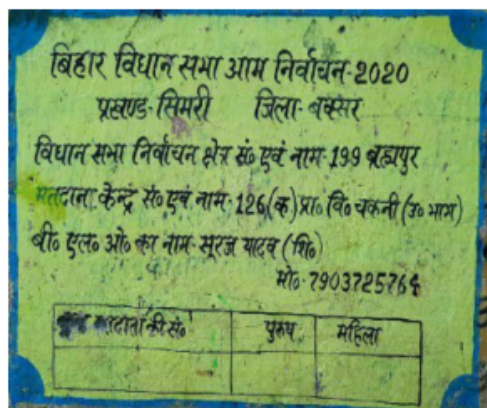 बिहार विधान सभा आम निर्वाचन-2020
प्रखण्ड-सिमरी जिला-बक्सर
विधान सभा निर्वाचन क्षेत्र सं० एवं नाम-199 ब्रह्मपुर
मतदाता केन्द्र सं० एवं नाम-126(क) प्रा० वि० चकनी (उ० भाग)
बी० एल० ओ० का नाम-सूरज यादव (शि०)
मो०-7903725764
मतदाता की सं० पुरुष महिला